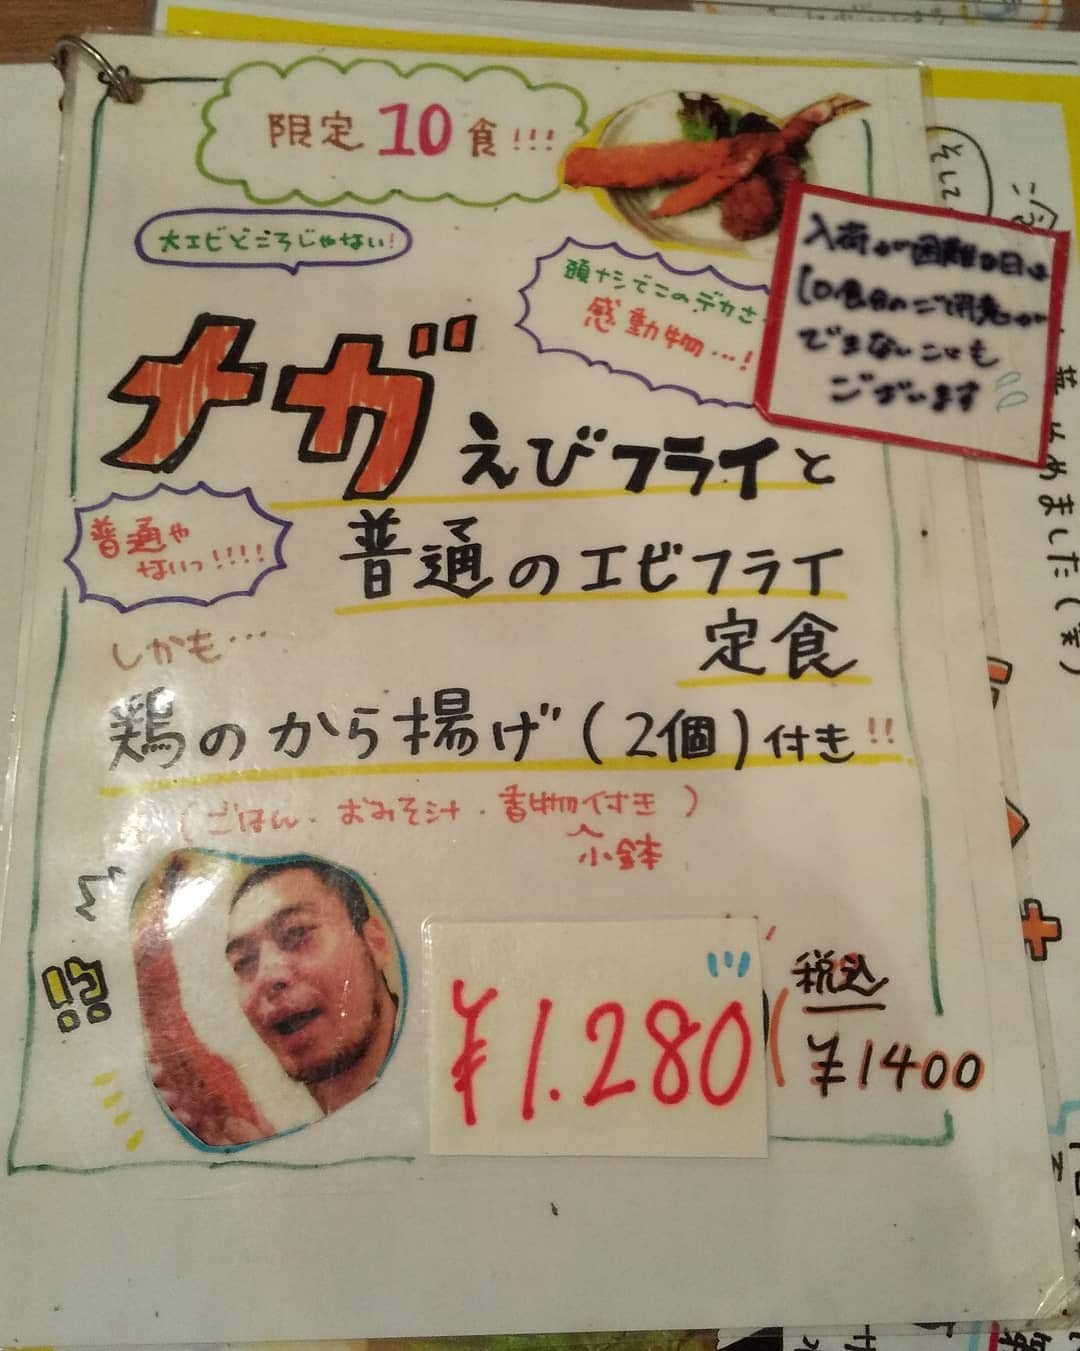 限定10食!!!
大エビどころじゃない!
頭ナシでこのデカさ、
感動物…!
入荷が困難な日は
10食分のご用意が
できないことも
ございます
メガえびフライと
普通や
ないっ!!!!
普通のエビフライ
定食
しかも…
鶏のから揚げ(2個)付き!!
(ごはん・おみそ汁・香物付き)
小鉢
!?
¥1.280
(税込
¥1400
そして
めました(笑)